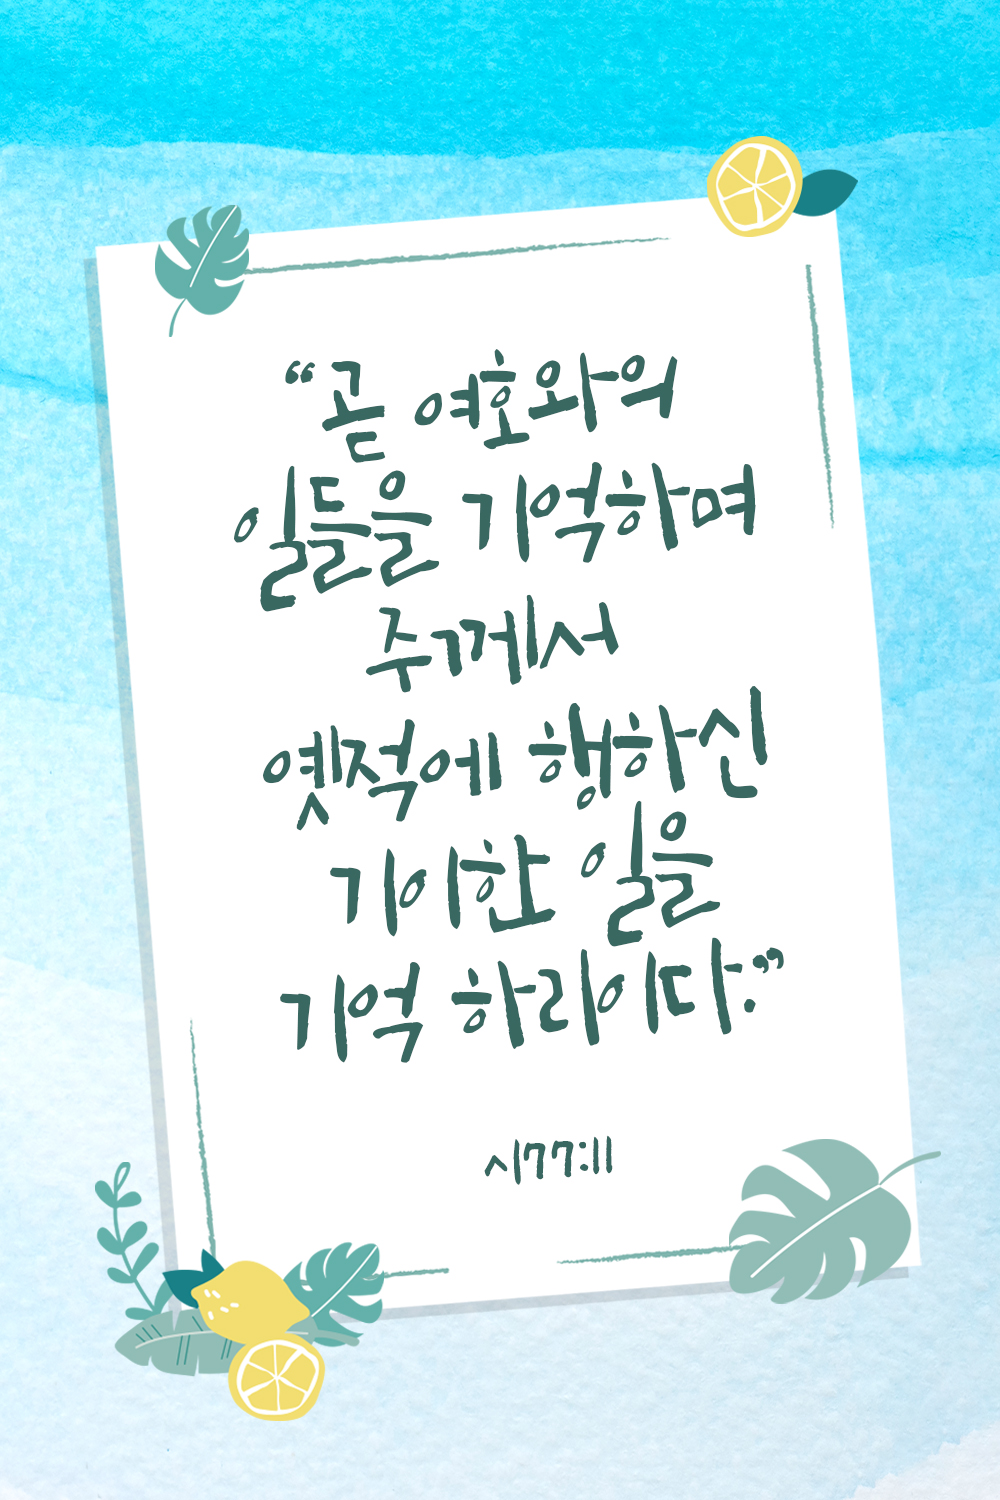 “곧 여호와의
일들을 기억하며
주께서
옛적에 행하신
기이한 일을
기억 하리이다.”
시77:11